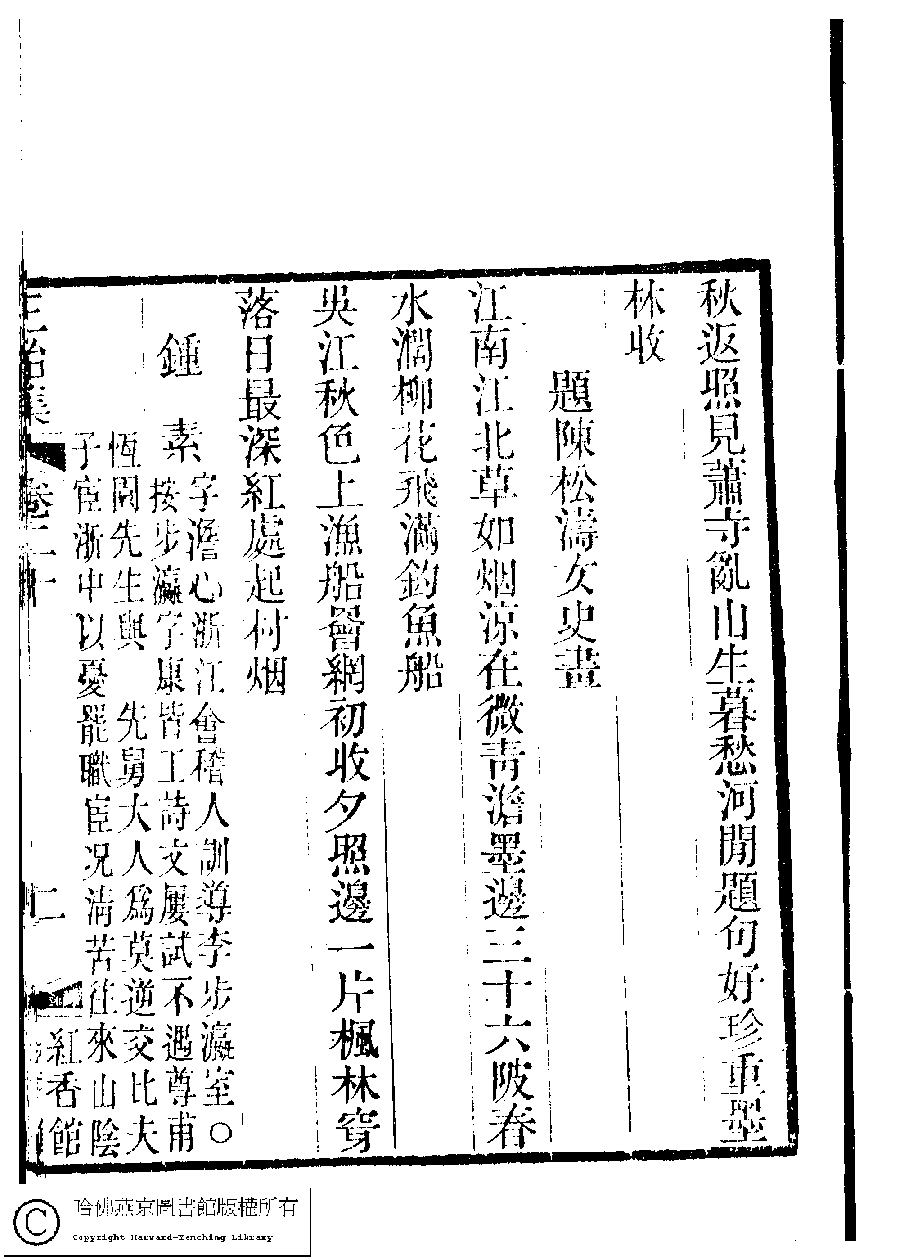 秋返照見蕭寺亂山生暮愁河閒題句好珍重墨
林收
題陳松濤女史畫
江南江北草如烟涼在微青澹墨邊三十六陂春
水濶柳花飛滿釣魚船
吳江秋色上漁船罾網初收夕照邊一片楓林穿
落日最深紅處起村烟
鍾素
字澹心浙江會稽人訓導李步瀛室〇
按步瀛字康皆工詩文屢試不遇尊甫
恆圃先生與 先舅大人爲莫逆交比夫
子宦浙中以憂罷職宦况淸苦往來山陰
正始集
卷二十
二
紅香館
哈佛燕京圖書館版權所有
Copyright Harvard-Yenching Library